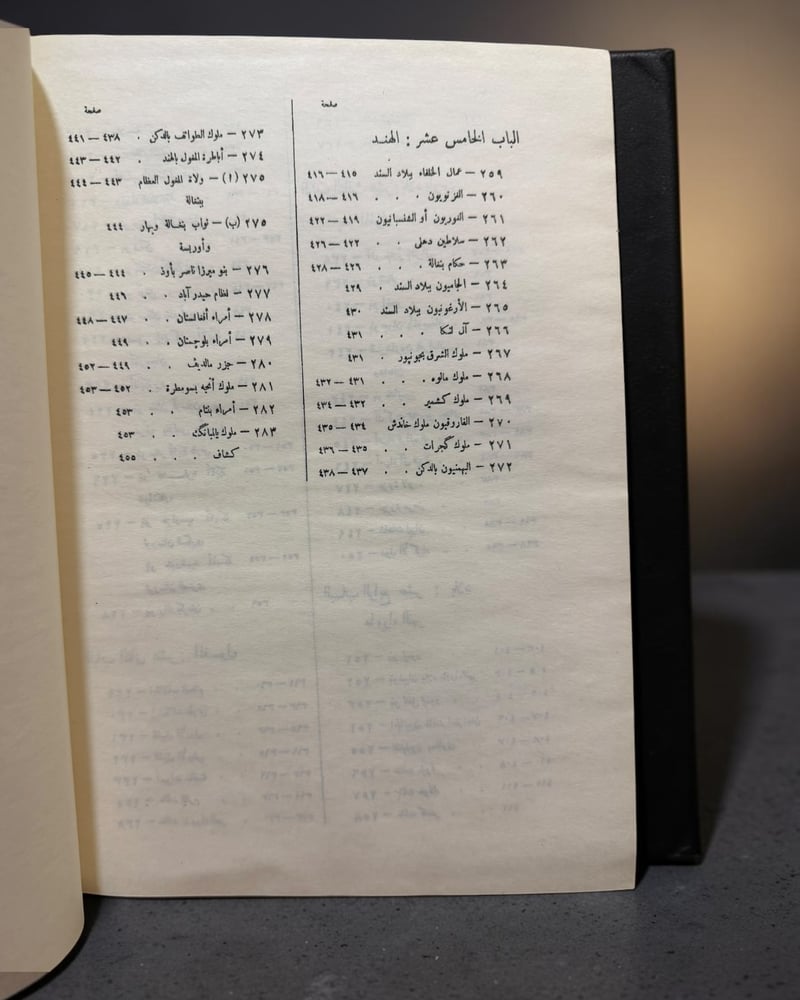 صفحة
الباب الخامس عشر : الهند
٢٥٩ — عمال الخلفاء ببلاد السند ٤١٥ — ٤١٦
٢٦٠ — الغزنويون . . . ٤١٦ — ٤١٨
٢٦١ — الغوريون أو الشنسبانيون ٤١٩ — ٤٢٢
٢٦٢ — سلاطين دهلى . . ٤٢٢ — ٤٢٦
٢٦٣ — حكام بنغالة . . . ٤٢٦ — ٤٢٨
٢٦٤ — الجاميون ببلاد السند . ٤٢٩
٢٦٥ — الأرغونيون ببلاد السند ٤٣٠
٢٦٦ — آل لنكا . . . ٤٣١
٢٦٧ — ملوك الشرق بجونپور . ٤٣١
٢٦٨ — ملوك مالوه . . . ٤٣١ — ٤٣٢
٢٦٩ — ملوك كشمير . . ٤٣٢ — ٤٣٤
٢٧٠ — الفاروقيون ملوك خاندش ٤٣٤ — ٤٣٥
٢٧١ — ملوك گجرات . . ٤٣٥ — ٤٣٦
٢٧٢ — البهمنيون بالدكن . . ٤٣٧ — ٤٣٨
صفحة
٢٧٣ — ملوك الطوائف بالدكن . ٤٣٨ — ٤٤١
٢٧٤ — أباطرة المغول بالهند . ٤٤٢ — ٤٤٣
٢٧٥ (١) — ولاة المغول العظام ٤٤٣ — ٤٤٤
ببنغالة
٢٧٥ (ب) — نواب بنغالة وبهار ٤٤٤
وأوريسة
٢٧٦ — بنو ميرزا ناصر بأوذ . ٤٤٤ — ٤٤٥
٢٧٧ — نظام حيدر آباد . . ٤٤٦
٢٧٨ — أمراء أفغانستان . ٤٤٧ — ٤٤٨
٢٧٩ — أمراء بلوچستان . . ٤٤٩
٢٨٠ — جزر مالديف . . ٤٤٩ — ٤٥٢
٢٨١ — ملوك آتجه بسومطرة . ٤٥٢ — ٤٥٣
٢٨٢ — أمراء بنتام . . ٤٥٣
٢٨٣ — ملوك . . ٤٥٣
كشاف . . . ٤٥٥